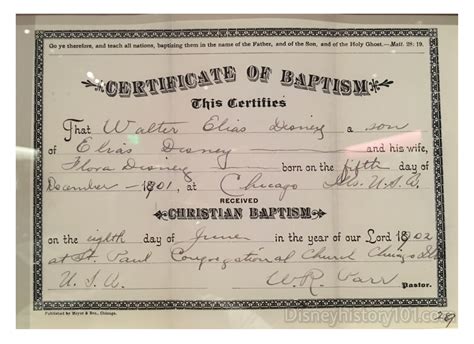 Go ye therefore, and teach all nations, baptizing them in the name of the Father, and of the Son, and of the Holy Ghost.—Matt. 28: 19.
CERTIFICATE OF BAPTISM
This Certifies
That Walter Elias Disney a son
of Elias Disney and his wife,
Flora Disney born on the fifth day of
December 1901, at Chicago Ills. U.S.A.
RECEIVED
CHRISTIAN BAPTISM
on the eighth day of June in the year of our Lord 1902
at St. Paul Congregational Church Chicago Ills
U.S.A. W.R. Parr Pastor.
Published by Meyer & Bro., Chicago.
Disneyhistory101.com